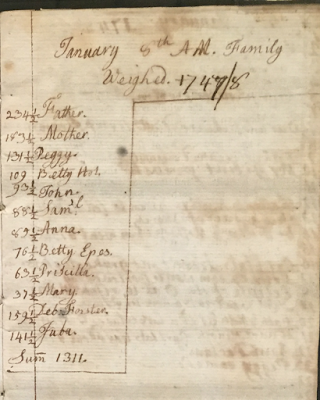 January 8th A.M. Family
Weighed. 1747/8
234½ Father.
183½ Mother.
131½ Peggy.
109 Betty Hol.
93½ John.
88½ Saml
89½ Anna.
76½ Betty Epes.
63½ Priscilla.
37½ Mary.
159½ Deb Forster.
141½ Juba.
Sum 1311.